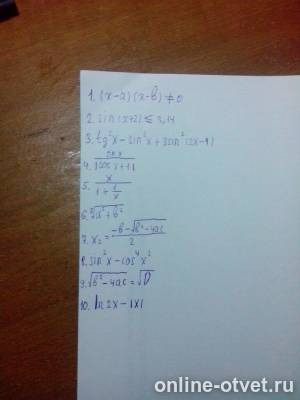 1. (x-a)(x-b)≠0
2. sin(x+2)≤3,14
3. tg²x - sin²x + 3sin²(2x-1)
4. /|cos x+1|
5. x/(1+1/x)
6. √(a²+b²)
7. x₂ = (-b-√(b²-4ac))/2
8. sin²x - cos⁴x²
9. √(b²-4ac) = √D
10. ln2x-|x|
online-otvet.ru